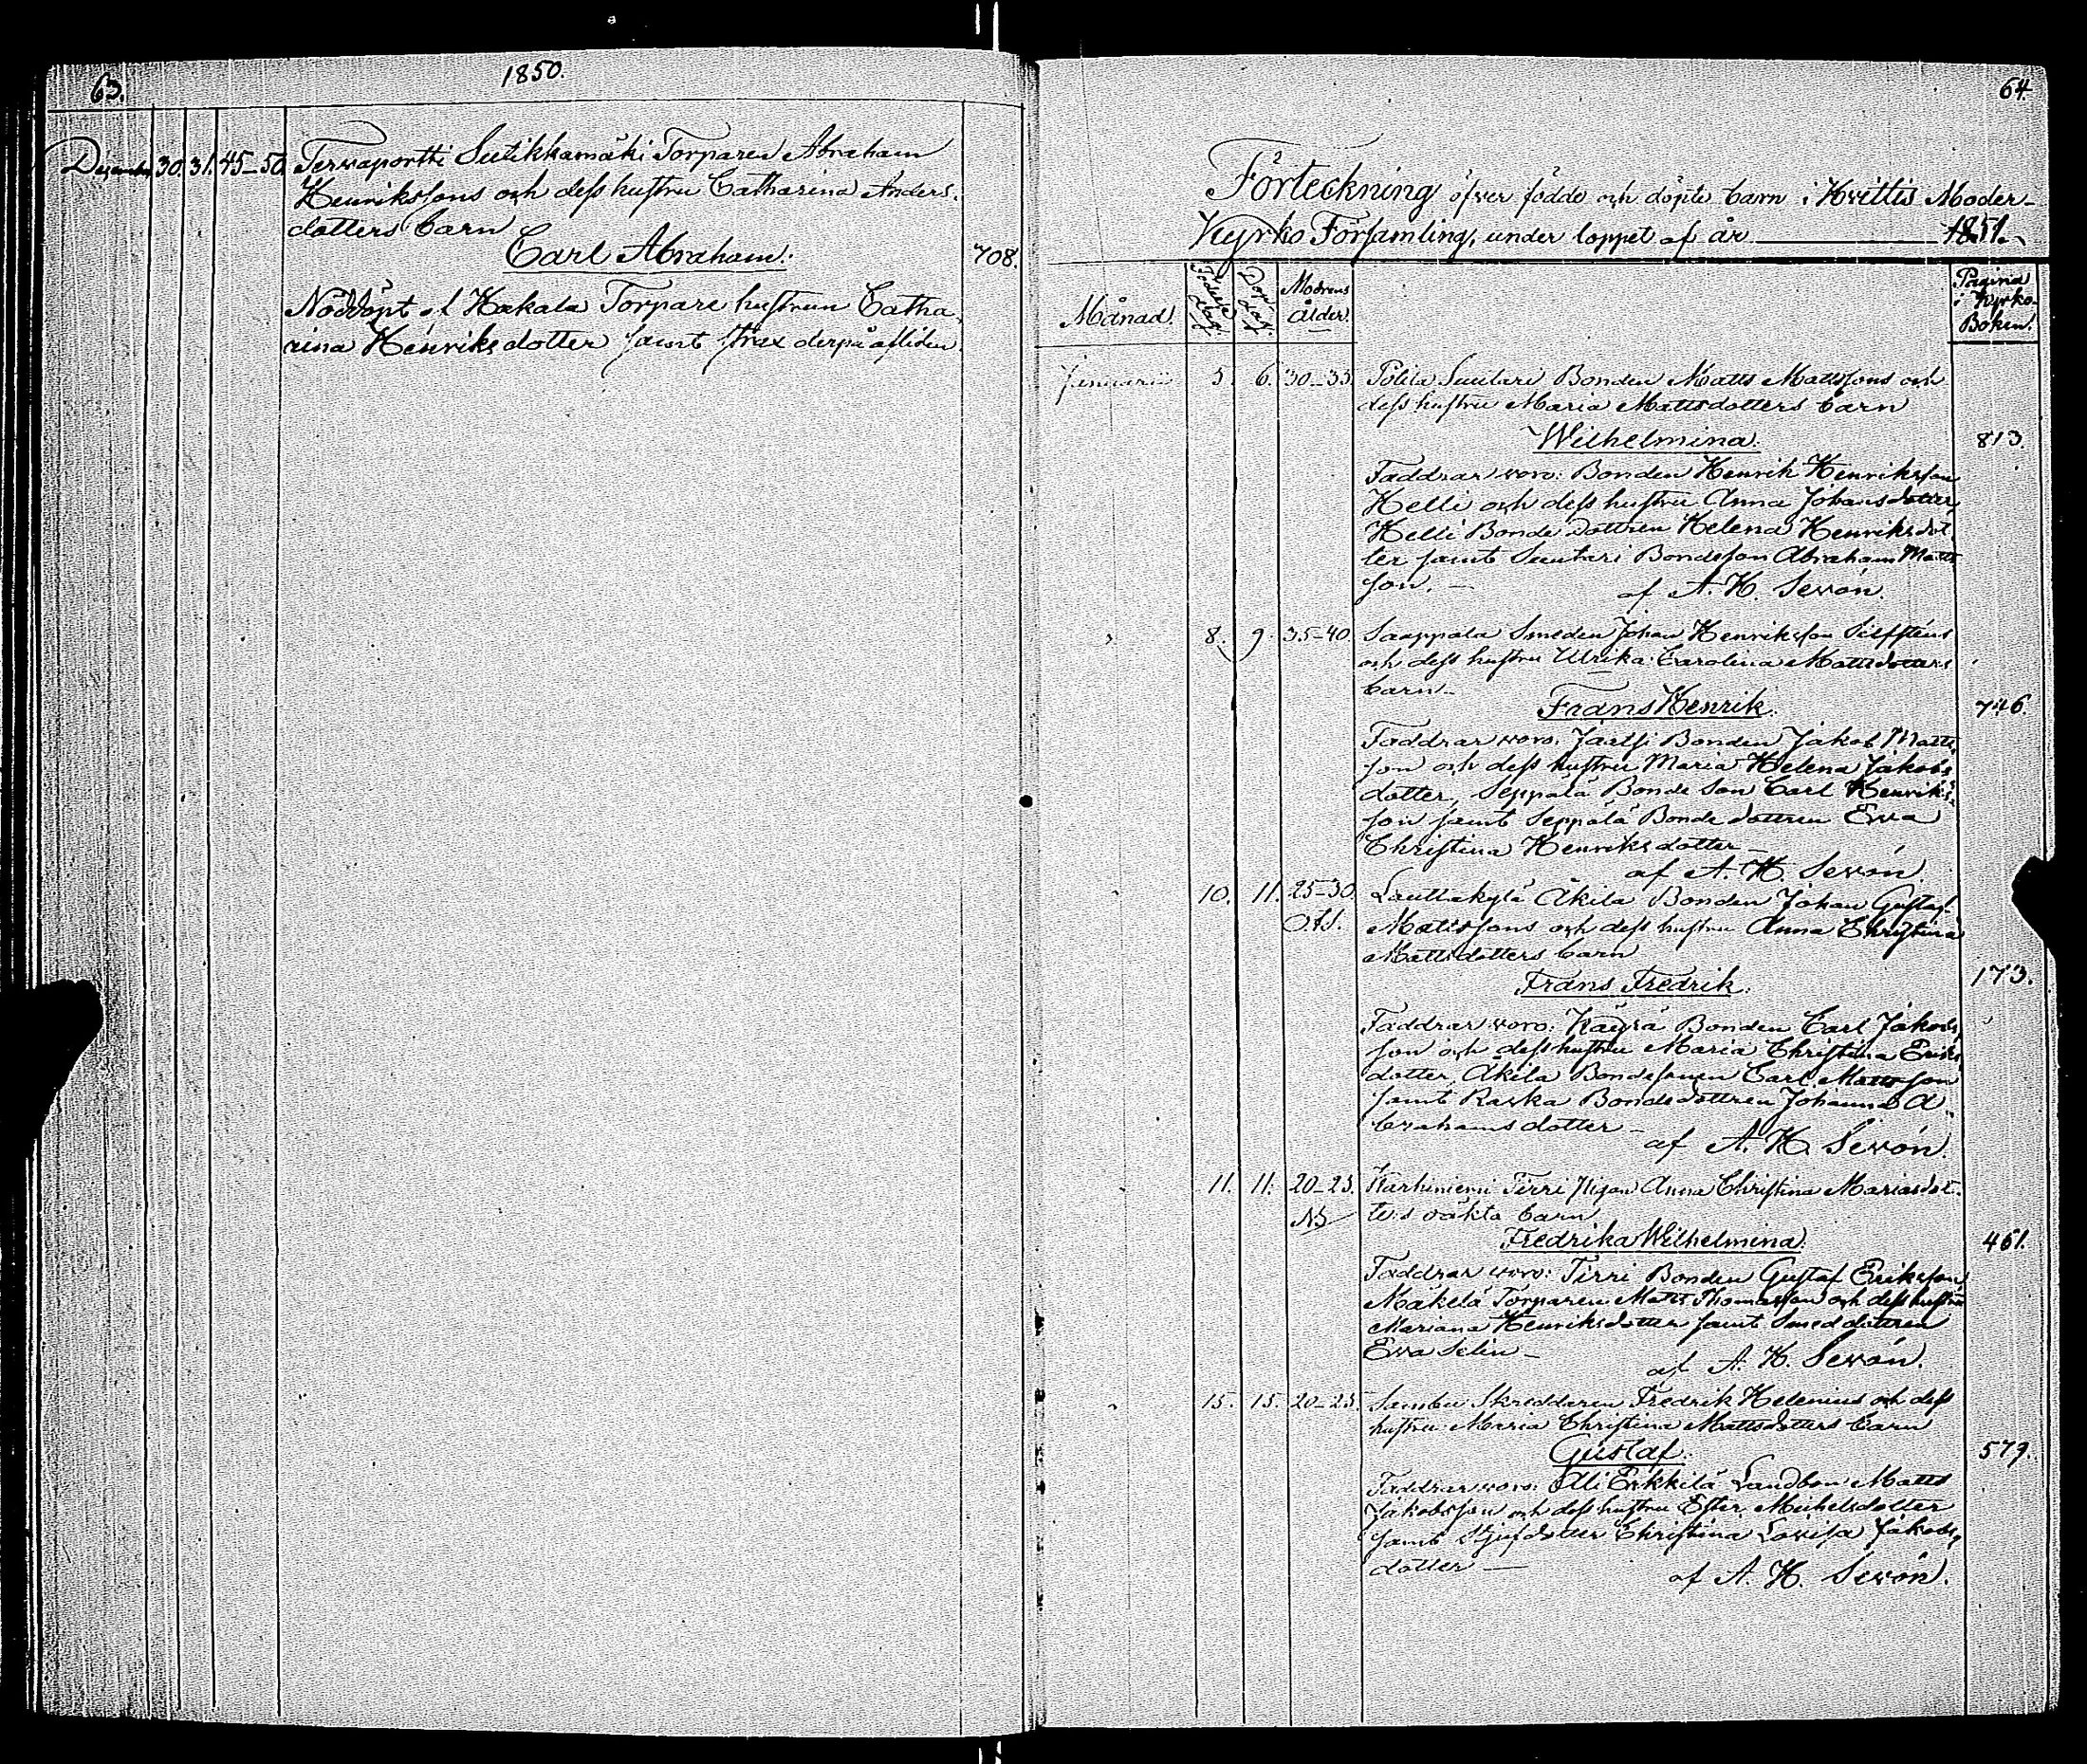 63.
1850.
December 30. 31. 45-50. Tervaportti Sutikkamäki Torparen Abraham
Henrikssons och dess hustru Catharina Anders-
dotters barn
Carl Abraham. 708.
Nöddöpt af Hakala Torpare hustrun Catha-
rina Henriksdotter samt strax derpå afliden.
64.
Förteckning öfver födde och döpte barn i Hvittis Moder-
Kyrko Församling, under loppet af år 1851.
Månad. Födelse dag. Dop dag. Modrens ålder. Pagina i Kyrko-Boken.
Januarii 5. 6. 30-35. Pölilä Suutari Bonden Matts Mattssons och
dess hustru Maria Mattsdotters barn
Wilhelmina. 813.
Faddrar voro: Bonden Henrik Henriksson
Helli och dess hustru Anna Johansdotter,
Helli Bonde Dottren Helena Henriksdot-
ter samt Suutari Bondeson Abraham Matts
son. -
af A. H. Sevón.
" 8. 9. 35-40. Smeden Johan Henriksson
och dess hustru Ulrika Carolina Mattsdotters
barn -
Frans Henrik. 746.
Faddrar voro: Bonden Jakob Matts
son och dess hustru Maria Helena Jakobs
dotter, Seppälä Bonde Son Carl Henriks-
son samt Seppälä Bonde dottren Eva
Christina Henriksdotter -
af A. H. Sevón.
" 10. 11. 25-30. Lauttakylä Äkilä Bonden Johan Gustaf
Mattssons och dess hustru Anna Christina
Mattsdotters barn
Frans Fredrik. 173.
Faddrar voro: Käyrä Bonden Carl Jakobs
son och dess hustru Maria Christina Eriks
dotter, Äkilä Bondesonen Carl Mattsson
samt Raska Bondedottren Johanna A-
brahamsdotter -
af A. H. Sevón.
11. 11. 20-25. Karhiniemi Tirri Pigan Anna Christina Mariasdot-
NB ters oäkta barn
Fredrika Wilhelmina. 461.
Faddrar voro: Tirri Bonden Gustaf Eriksson,
Mäkelä Torparen Matts Thomasson och dess hustru
Mariana Henriksdotter samt Smeddottren
Eva Selin -
af A. H. Sevón.
" 15. 15. 20-25. Sambu Skräddaren Fredrik Helenius och dess
hustru Maria Christina Mattsdotters barn
Gustaf. 579.
Faddrar voro: Olli Erkkilä Landbon Matts
Jakobsson och dess hustru Ester Michelsdotter
samt Styfdotter Christina Lovisa Jakobs-
dotter -
af A. H. Sevón.